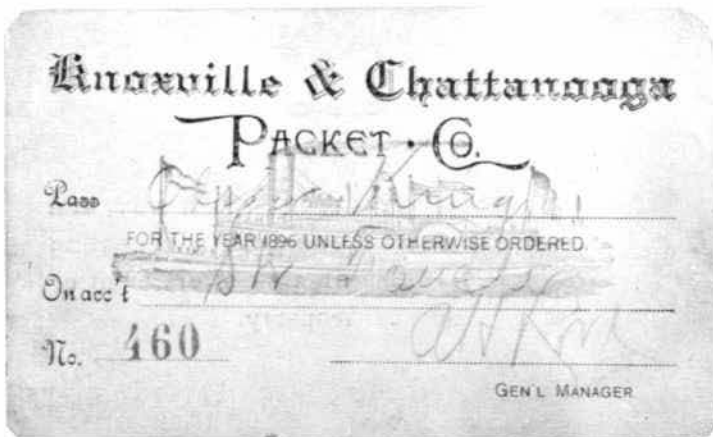 Knoxville & Chattanooga
PACKET · CO.
Pass
FOR THE YEAR 1896 UNLESS OTHERWISE ORDERED.
On acc't
No. 460
GEN'L MANAGER